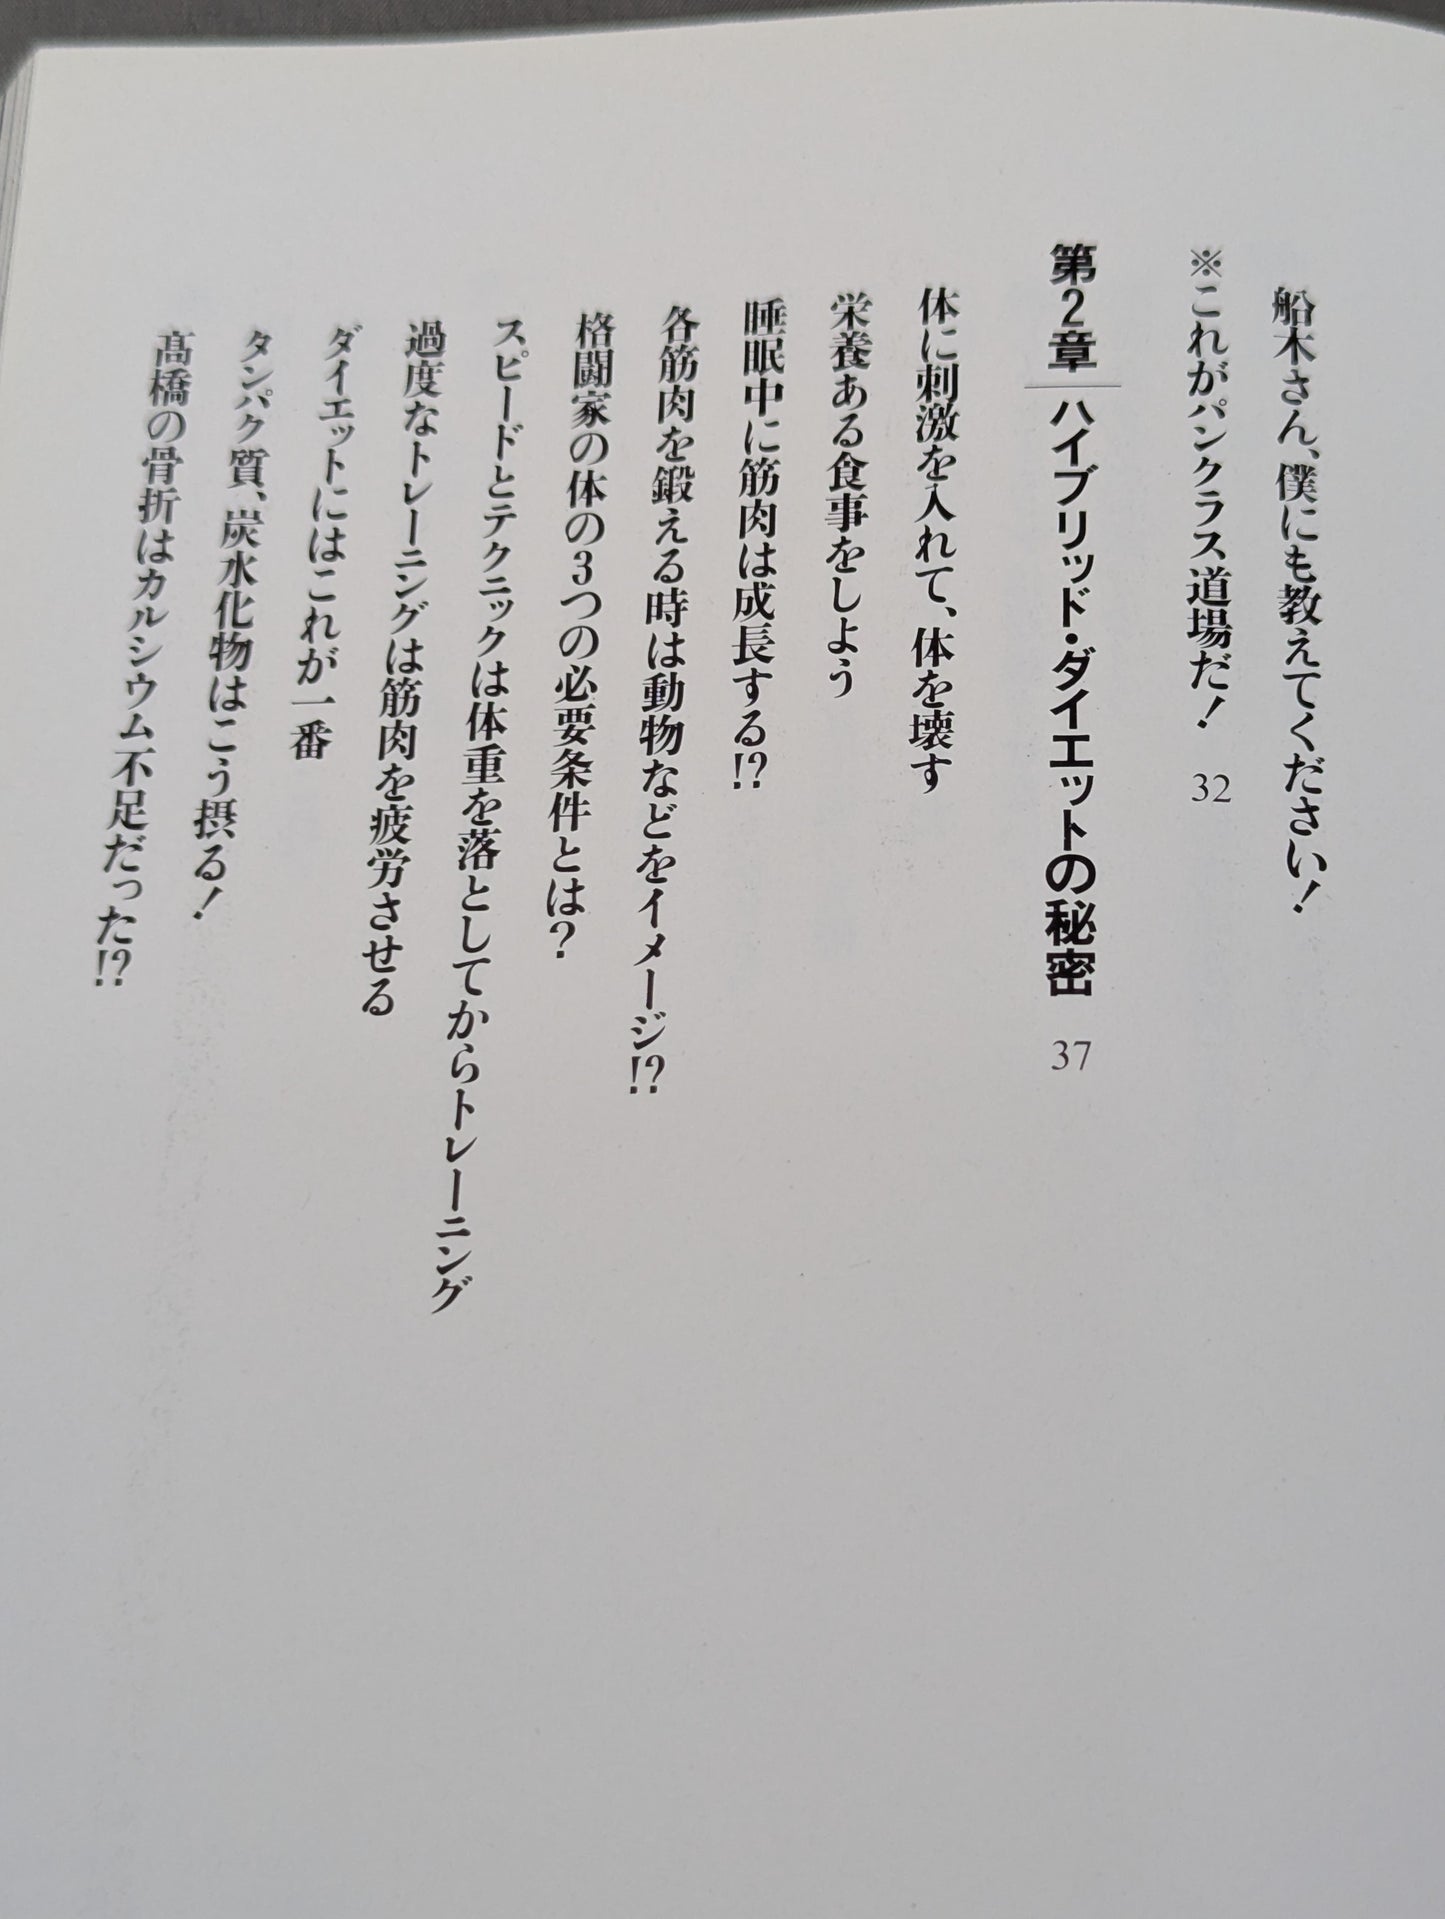 船木さん、僕にも教えてください!
※これがパンクラス道場だ! 32
第2章 ハイブリッド・ダイエットの秘密 37
体に刺激を入れて、体を壊す
栄養ある食事をしよう
睡眠中に筋肉は成長する!?
各筋肉を鍛える時は動物などをイメージ!?
格闘家の体の3つの必要条件とは?
スピードとテクニックは体重を落としてからトレーニング
過度なトレーニングは筋肉を疲労させる
ダイエットにはこれが一番
タンパク質、炭水化物はこう摂る!
髙橋の骨折はカルシウム不足だった!?